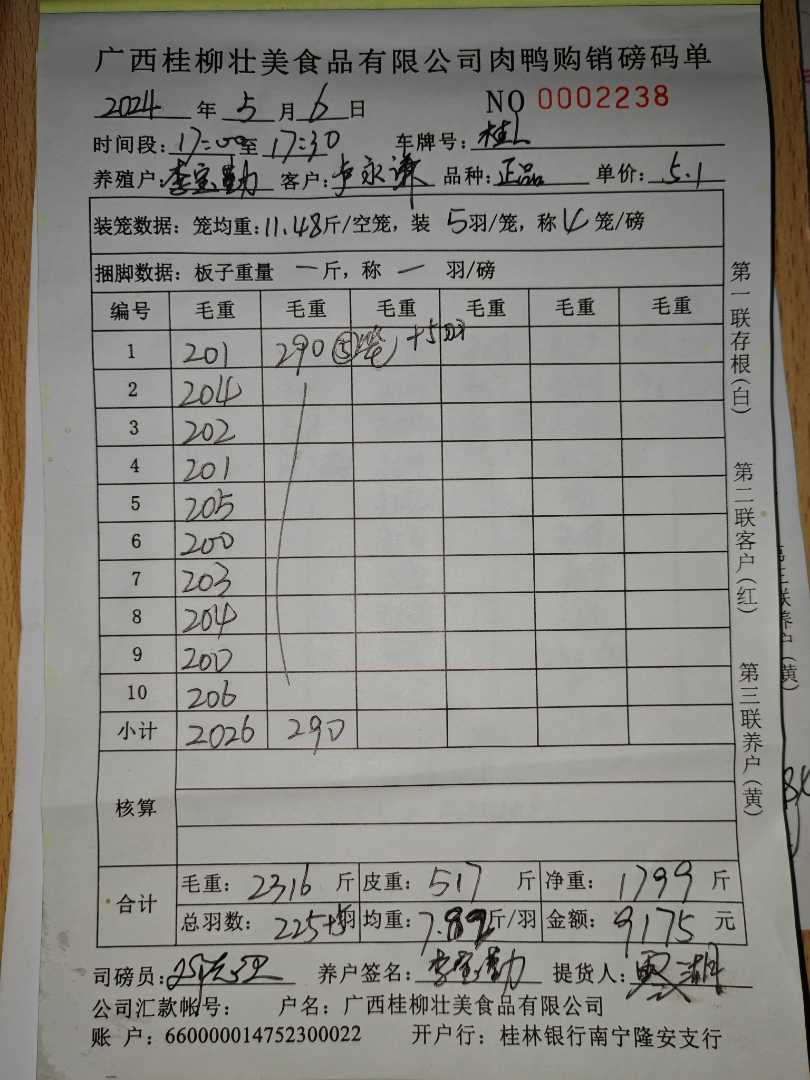 广西桂柳壮美食品有限公司肉鸭购销磅码单
2024年5月6日 NO 0002238
时间段:17:00至17:30 车牌号:桂
养殖户:李宝勤 客户:卢永谦 品种:正品 单价:5.1
装笼数据:笼均重:11.48斤/空笼,装5羽/笼,称4笼/磅
捆脚数据:板子重量一斤,称一羽/磅
编号 毛重 毛重 毛重 毛重 毛重 毛重
1 201 290 ⑤笼+5羽
2 204
3 202
4 201
5 205
6 200
7 203
8 204
9 200
10 206
小计 2026 290
核算
合计
毛重:2316斤 皮重:517斤 净重:1799斤
总羽数:225+5羽 均重:7.82斤/羽 金额:9175元
司磅员: 养户签名:李宝勤 提货人:
公司汇款帐号: 户名:广西桂柳壮美食品有限公司
账 户:660000014752300022 开户行:桂林银行南宁隆安支行
第一联存根(白) 第二联客户(红) 第三联养户(黄)